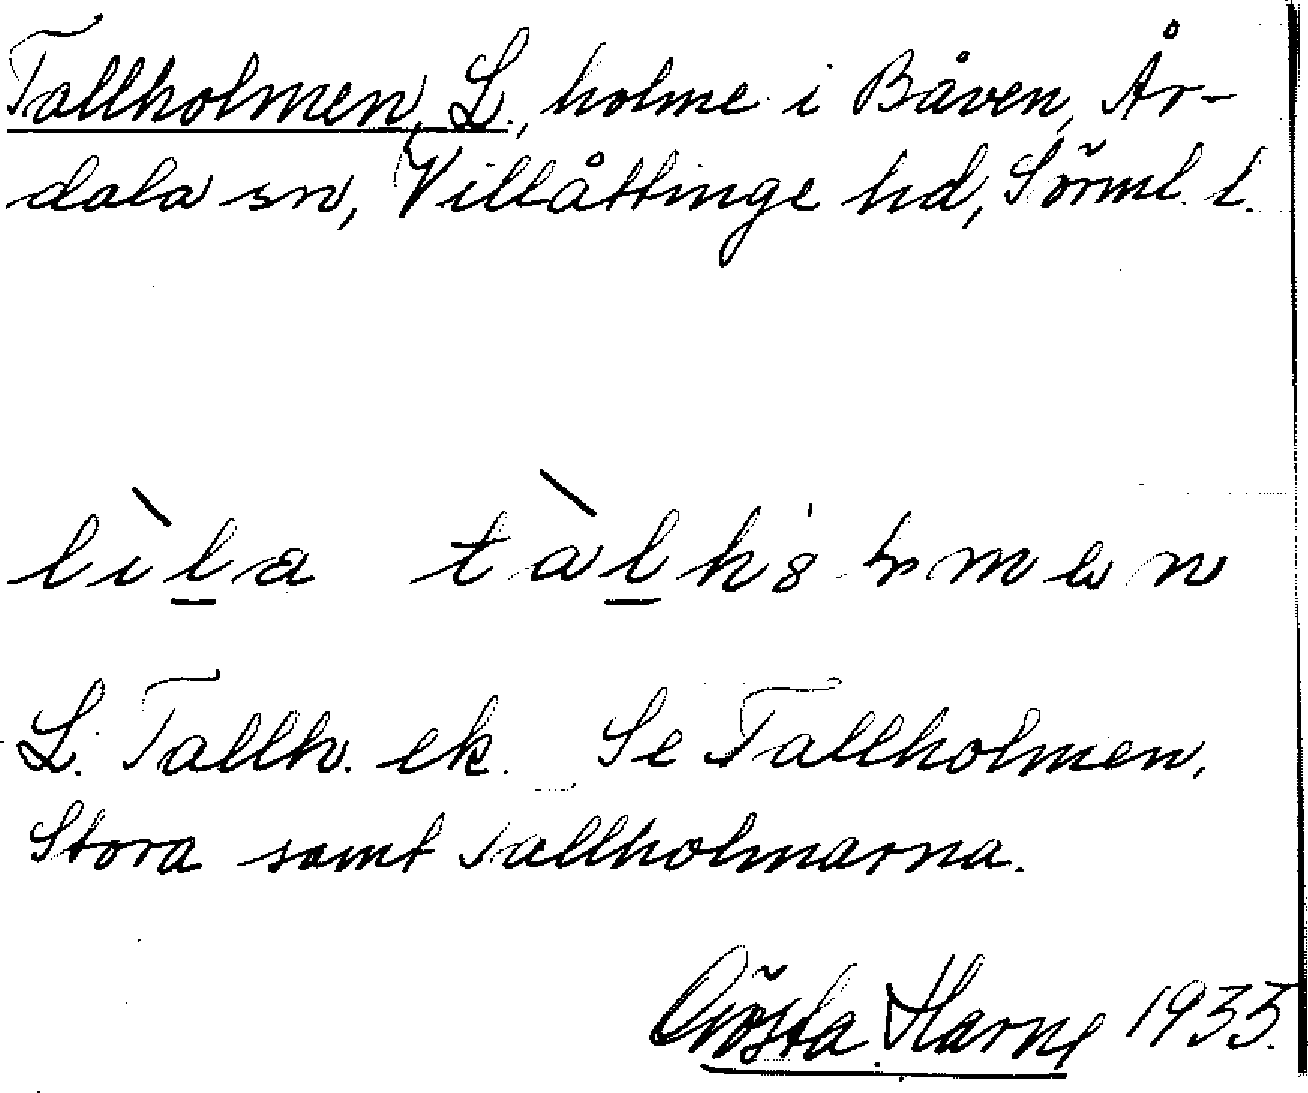 Tallholmen, L., holme i Båven, År-
dala sn, Villåttinge hd, Sörml. l.
lìla tàlhólmen
L. Tallh. ek. Se Tallholmen,
Stora samt Tallholmarna.
Gösta Harne 1935.